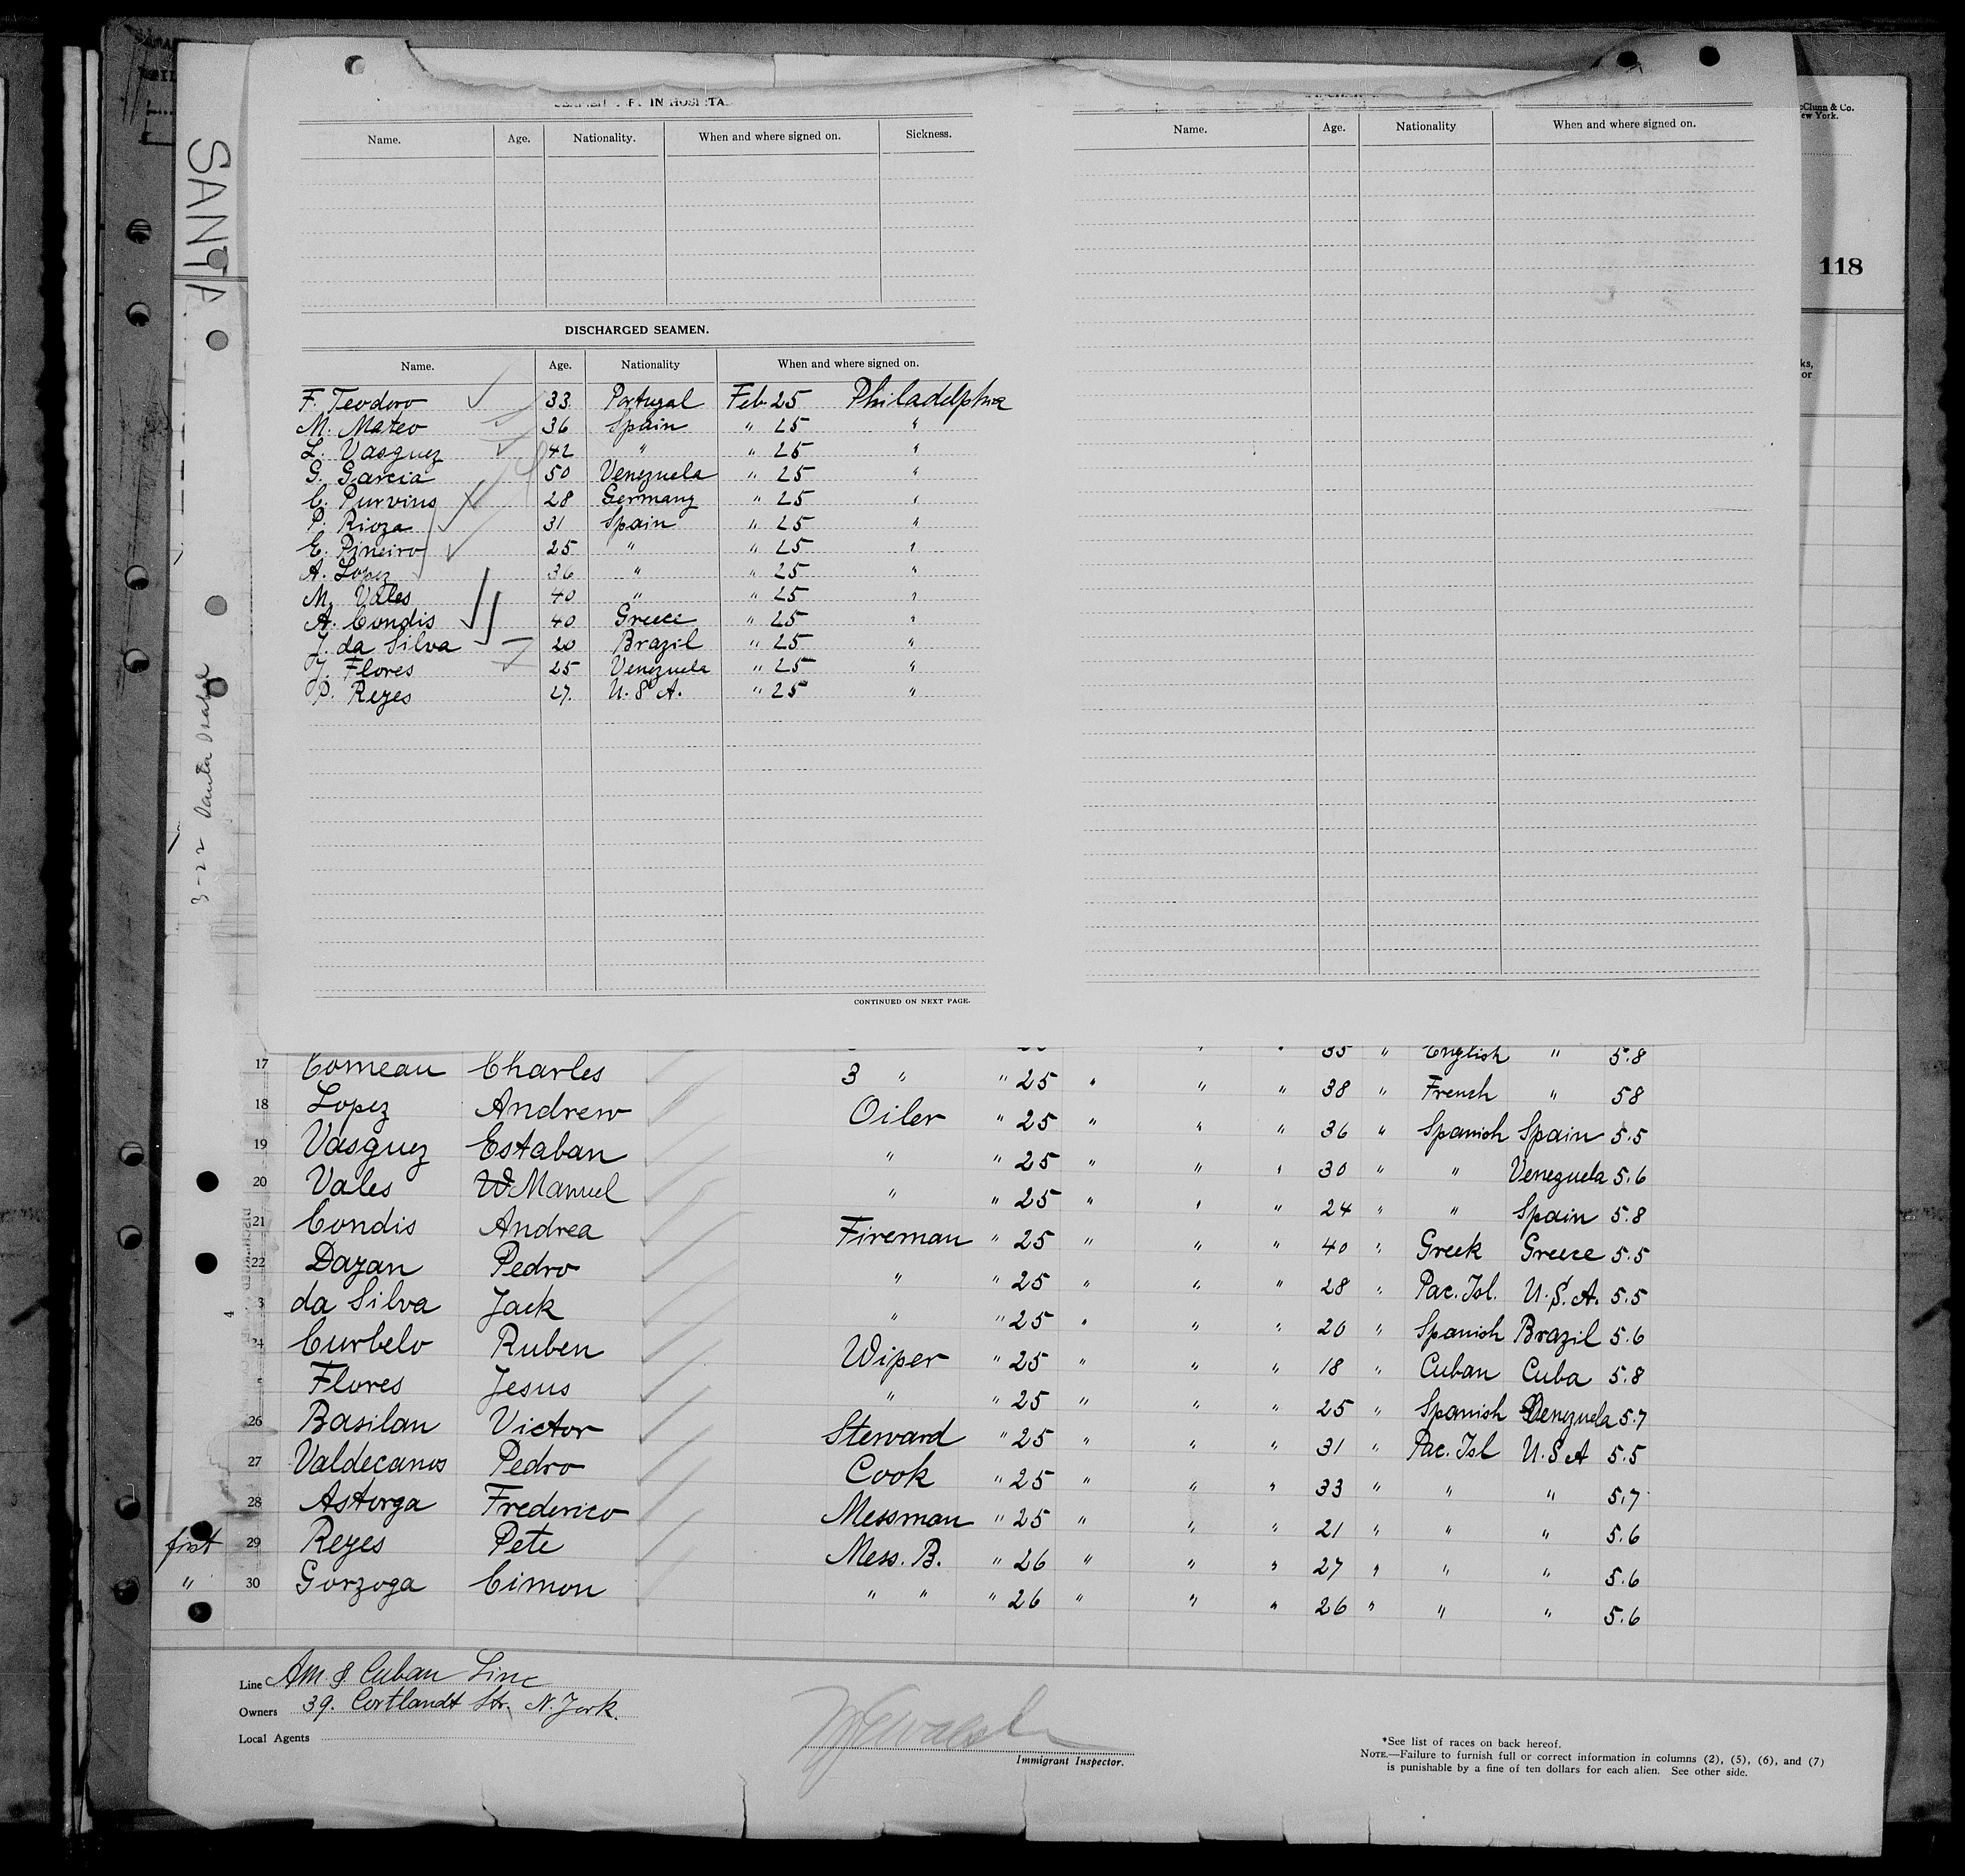 SANTA
3-22 Santa Isabel
McClunn & Co.
New York.
118
ks,
or
IN HOSPITA
Name. Age. Nationality. When and where signed on. Sickness.
Name. Age. Nationality When and where signed on.
DISCHARGED SEAMEN.
Name. Age. Nationality When and where signed on.
F. Teodoro 33 Portugal Feb 25 Philadelphia
M. Mateo 36 Spain " 25 "
L. Vasquez 42 " " 25 "
G. Garcia 50 Venezuela " 25 "
C. Purvins 28 Germany " 25 "
P. Rioza 31 Spain " 25 "
E. Pineiro 25 " " 25 "
A. Lopez 36 " " 25 "
M. Vales 40 " " 25 "
A. Condis 40 Greece " 25 "
J. da Silva 20 Brazil " 25 "
J. Flores 25 Venezuela " 25 "
P. Reyes 27. U.S A. " 25 "
CONTINUED ON NEXT PAGE.
35 " English " 5.8
17 Comeau Charles 3 " " 25 " " " 38 " French " 58
18 Lopez Andrew Oiler " 25 " " " 36 " Spanish Spain 5.5
19 Vasquez Estaban " " 25 " " " 30 " " Venezuela 5.6
20 Vales W Manuel " " 25 " " " 24 " " Spain 5.8
21 Condis Andrea Fireman " 25 " " " 40 " Greek Greece 5.5
22 Dazan Pedro " " 25 " " " 28 " Pac. Isl. U.S.A. 5.5
3 da Silva Jack " " 25 " " " 20 " Spanish Brazil 5.6
24 Curbelo Ruben Wiper " 25 " " " 18 " Cuban Cuba 5.8
Flores Jesus " " 25 " " " 25 " Spanish Venezuela 5.7
26 Basilan Victor Steward " 25 " " " 31 " Pac. Isl U.S A 5.5
27 Valdecanos Pedro Cook " 25 " " " 33 " " " 5.7
28 Astorga Frederico Messman " 25 " " " 21 " " " 5.6
first 29 Reyes Pete Mess. B. " 26 " " " 27 " " " 5.6
" 30 Gorzoga Cimon " " " 26 " " " 26 " " " 5.6
Line Am & Cuban Line
Owners 39. Cortlandt Str. N. York.
Local Agents
Immigrant Inspector.
*See list of races on back hereof.
NOTE.—Failure to furnish full or correct information in columns (2), (5), (6), and (7)
is punishable by a fine of ten dollars for each alien. See other side.